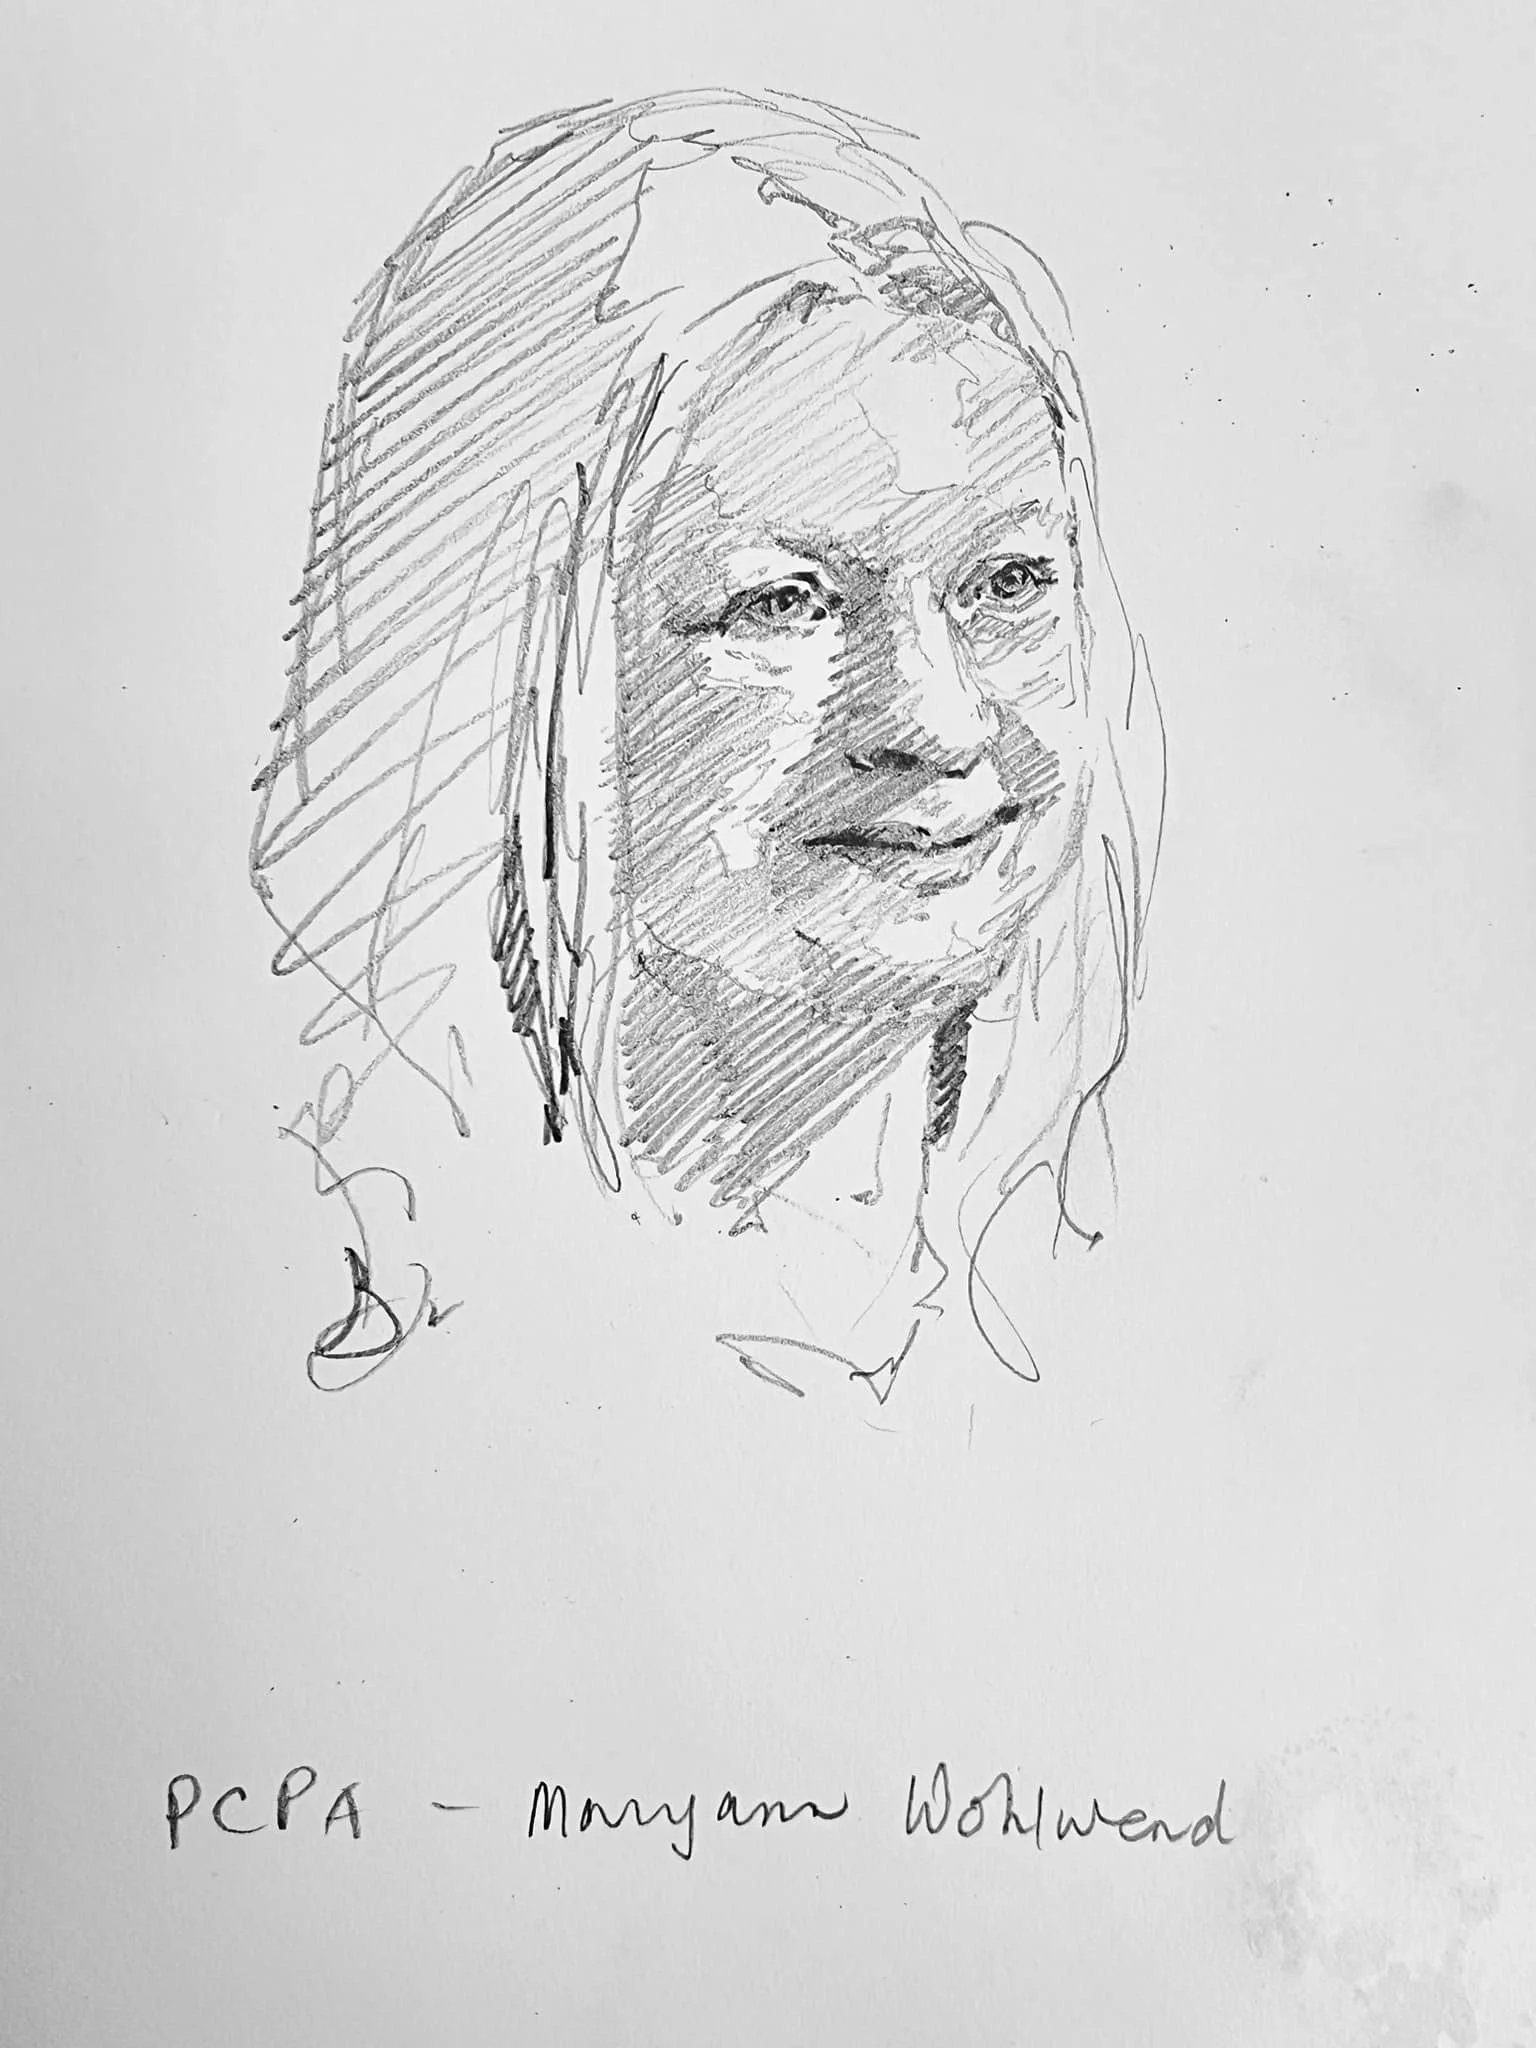 PCPA - Maryann Wohlwend